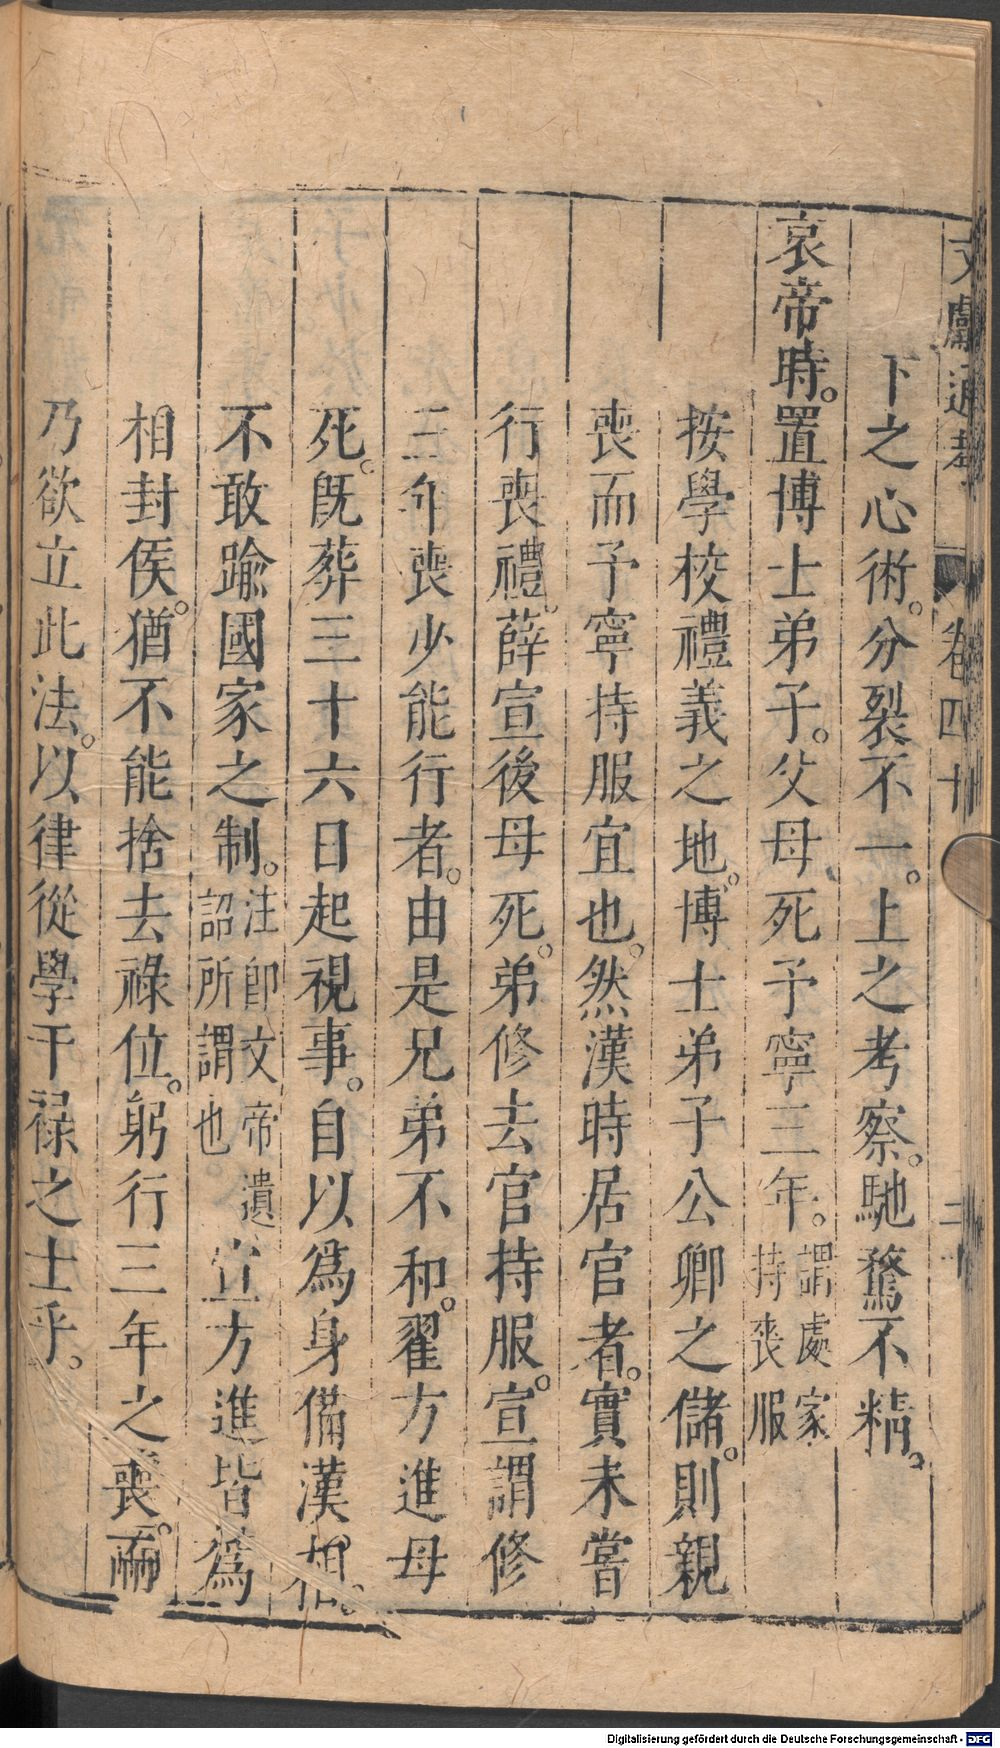 文獻通考 卷四十 二十
下之心術。分裂不一。上之考察。馳騖不精。
哀帝時。置博士弟子。父母死予寧三年。謂處家持喪服
按學校禮義之地。博士弟子公卿之儲。則親
喪而予寧持服宜也。然漢時居官者。實未嘗
行喪禮。薛宣後母死。弟修去官持服。宣謂修
三年喪少能行者。由是兄弟不和。翟方進母
死。旣葬三十六日起視事。自以爲身備漢相。
不敢踰國家之制。注卽文帝遺詔所謂也。宣方進皆爲
相封侯。猶不能捨去祿位。躬行三年之喪。而
乃欲立此法。以律從學干祿之士乎。
Digitalisierung gefördert durch die Deutsche Forschungsgemeinschaft - DFG